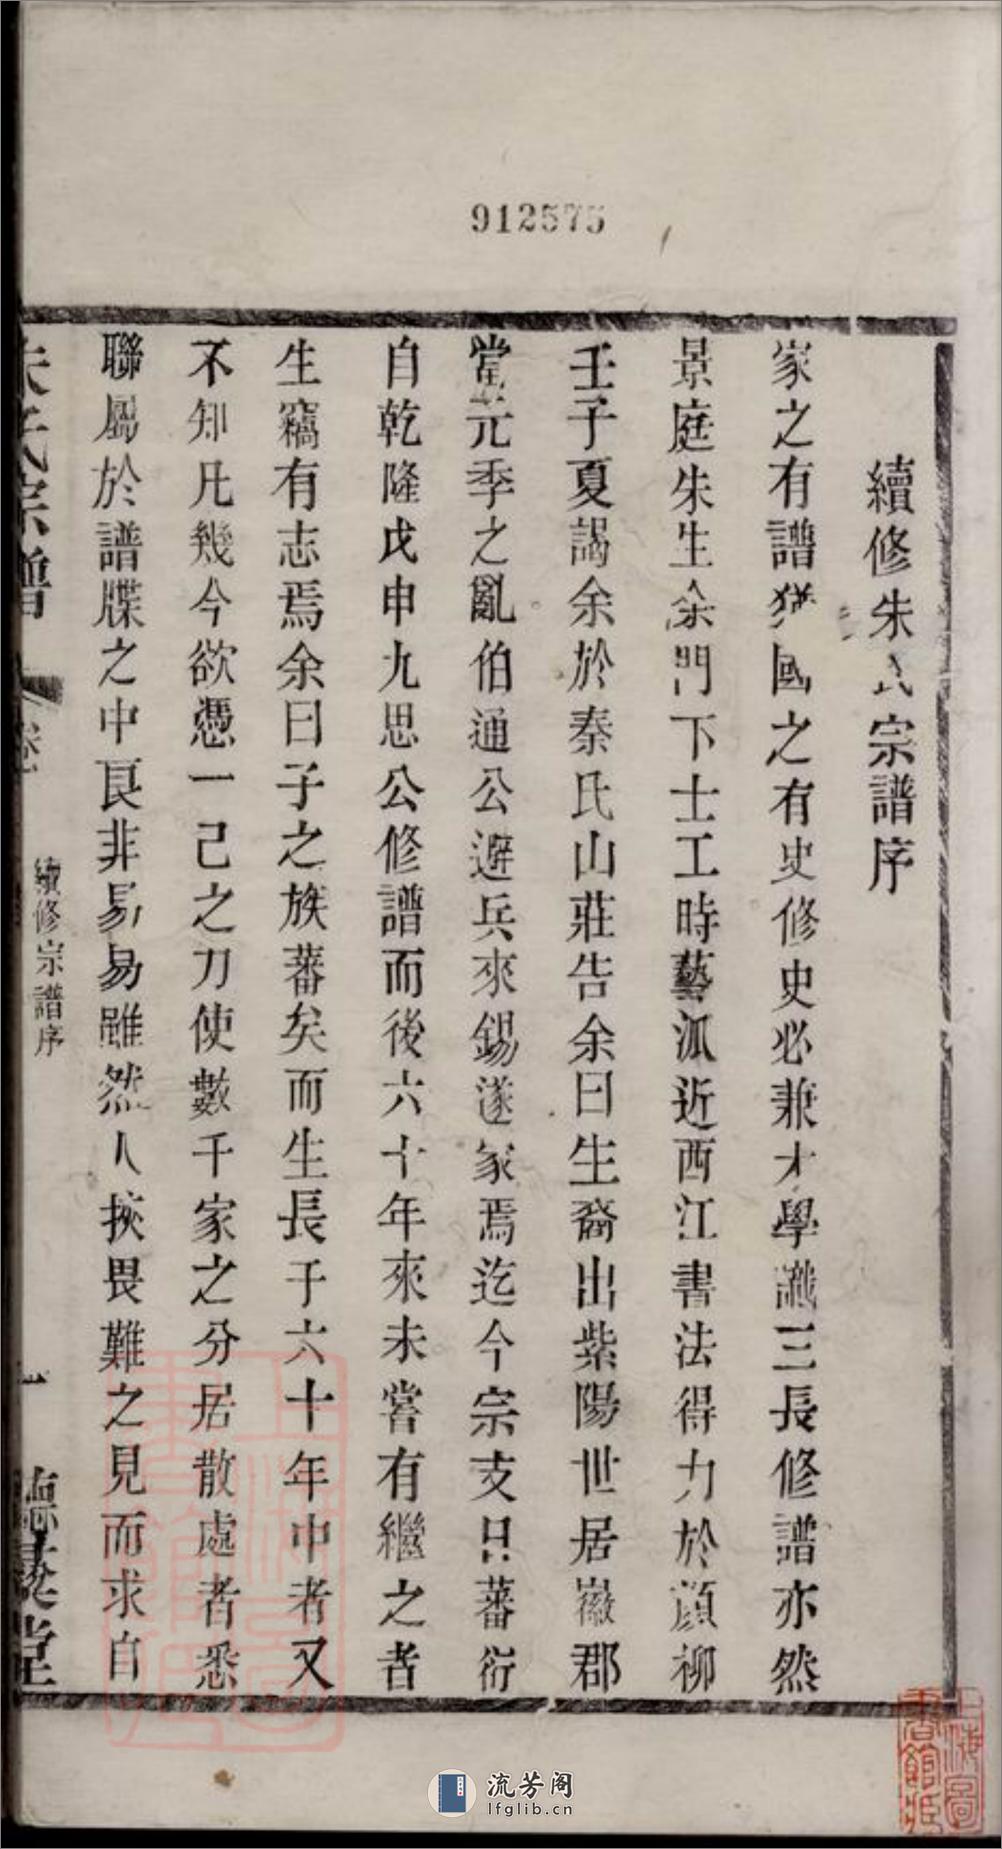 912575
續修朱氏宗譜序
家之有譜猶國之有史修史必兼才學識三長修譜亦然
景庭朱生余門下士工時藝派近西江書法得力於顏柳
壬子夏謁余於秦氏山莊告余曰生裔出紫陽世居徽郡
當元季之亂伯通公避兵來錫遂家焉迄今宗支日蕃衍
自乾隆戊申九思公修譜而後六十年來未嘗有繼之者
生竊有志焉余曰子之族蕃矣而生長于六十年中者又
不知凡幾今欲憑一己之力使數千家之分居散處者悉
聯屬於譜牒之中良非易易雖然人挾畏難之見而求自
朱氏宗譜
卷
續修宗譜序
一
堂
上海圖書館藏
流芳阁
lfglib.cn